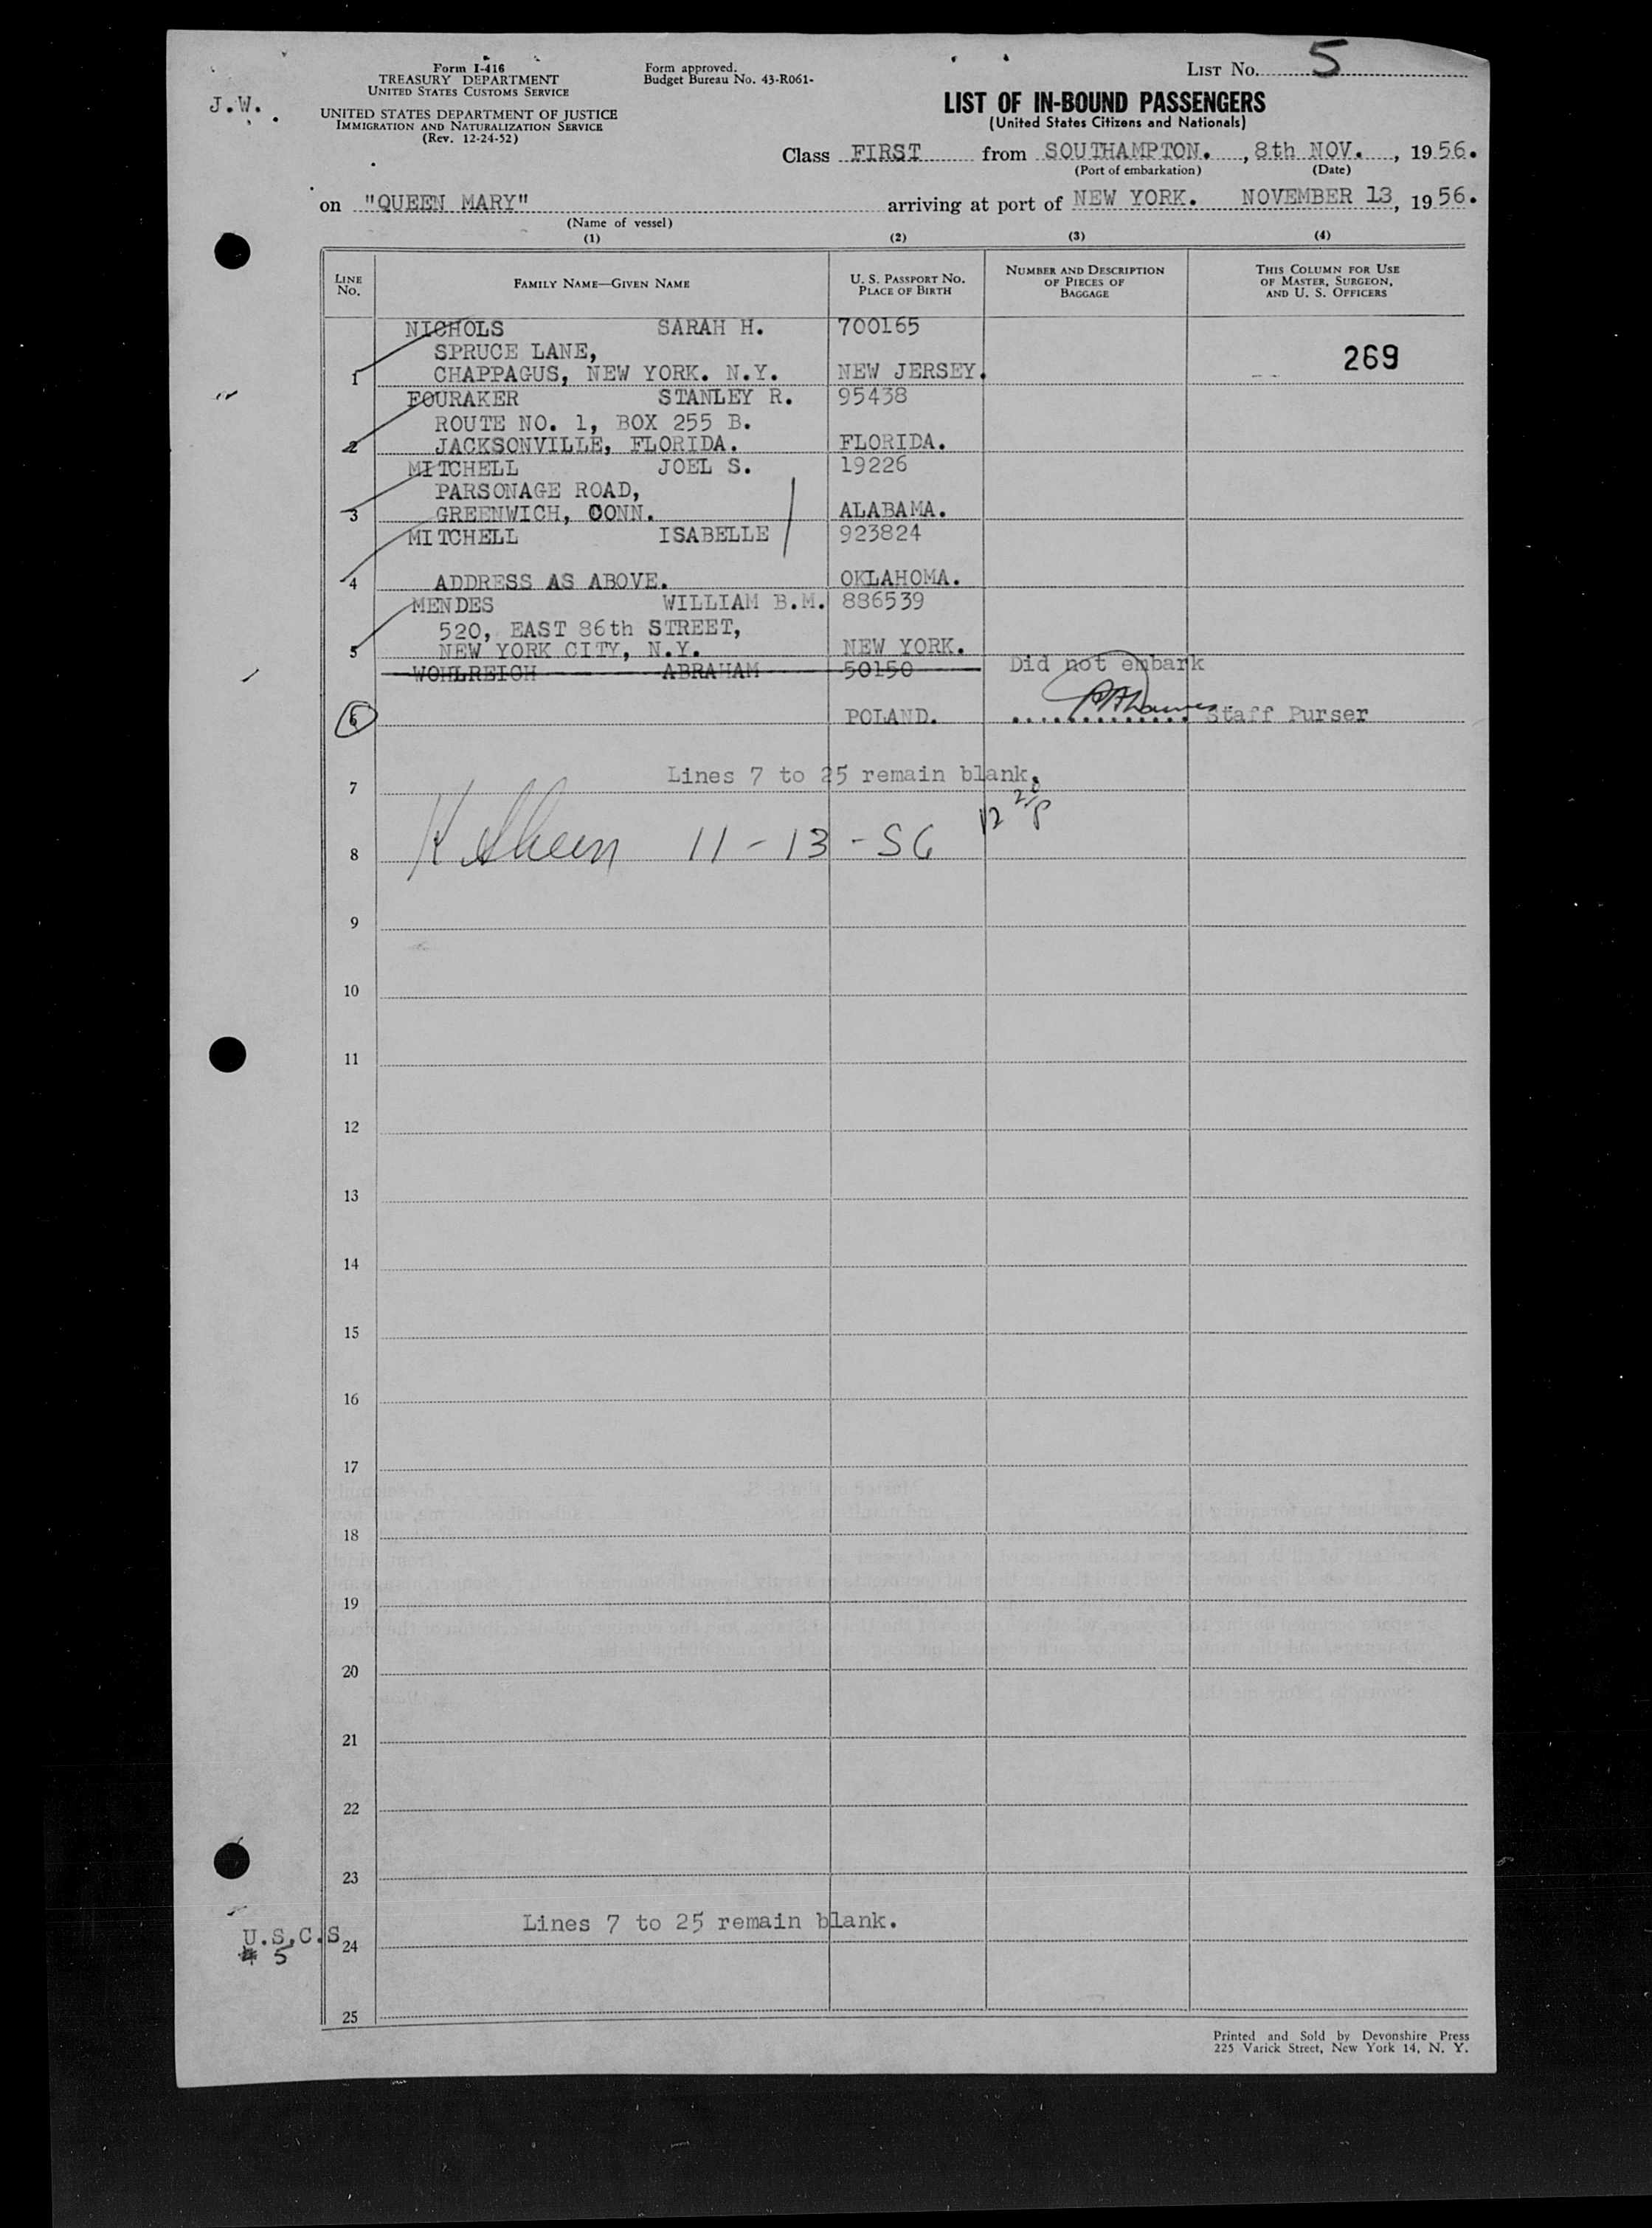 J.W.
Form I-416
TREASURY DEPARTMENT
UNITED STATES CUSTOMS SERVICE
UNITED STATES DEPARTMENT OF JUSTICE
IMMIGRATION AND NATURALIZATION SERVICE
(Rev. 12-24-52)
Form approved.
Budget Bureau No. 43-R061-
LIST No. 5
LIST OF IN-BOUND PASSENGERS
(United States Citizens and Nationals)
Class FIRST from SOUTHAMPTON. , 8th NOV. , 1956.
(Port of embarkation) (Date)
on "QUEEN MARY" arriving at port of NEW YORK. NOVEMBER 13, 1956.
(Name of vessel)
(1) (2) (3) (4)
LINE No. FAMILY NAME—GIVEN NAME U. S. PASSPORT NO. PLACE OF BIRTH NUMBER AND DESCRIPTION OF PIECES OF BAGGAGE THIS COLUMN FOR USE OF MASTER, SURGEON, AND U. S. OFFICERS
NICHOLS SARAH H. 700165
SPRUCE LANE, 269
1 CHAPPAGUS, NEW YORK. N.Y. NEW JERSEY.
FOURAKER STANLEY R. 95438
ROUTE NO. 1, BOX 255 B.
2 JACKSONVILLE, FLORIDA. FLORIDA.
MITCHELL JOEL S. 19226
PARSONAGE ROAD,
3 GREENWICH, CONN. ALABAMA.
MITCHELL ISABELLE 923824
4 ADDRESS AS ABOVE. OKLAHOMA.
MENDES WILLIAM B.M. 886539
520, EAST 86th STREET,
5 NEW YORK CITY, N.Y. NEW YORK.
WOHLREICH ABRAHAM 50150 Did not embark
6 POLAND. Staff Purser
Lines 7 to 25 remain blank.
7
8 11-13-56
9
10
11
12
13
14
15
16
17
18
19
20
21
22
23
Lines 7 to 25 remain blank.
U.S.C.S
24
# 5
25
Printed and Sold by Devonshire Press
225 Varick Street, New York 14, N. Y.